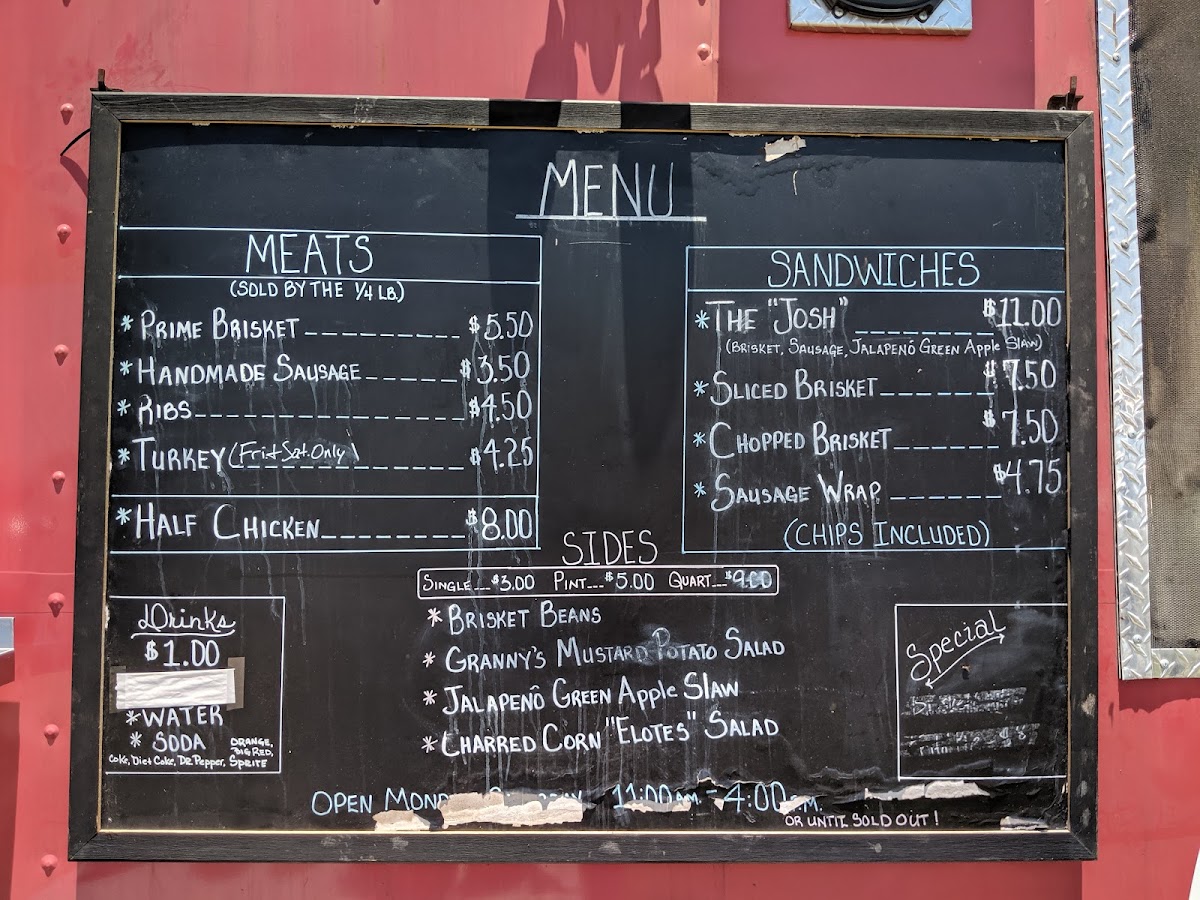 MENU
MEATS
(SOLD BY THE 1/4 LB.)
* PRIME BRISKET $5.50
* HANDMADE SAUSAGE $3.50
* RIBS $4.50
* TURKEY (Fri + Sat. Only) $4.25
* HALF CHICKEN $8.00
SANDWICHES
* THE "JOSH" $11.00
(BRISKET, SAUSAGE, JALAPENÓ GREEN Apple SlAW)
* SLICED BRISKET $7.50
* CHOPPED BRISKET $7.50
* SAUSAGE WRAP $4.75
(CHIPS INCLUDED)
SIDES
SINGLE $3.00 PINT $5.00 QUART $9.00
* BRISKET BEANS
* GRANNY'S MUSTARD POTATO SALAD
* JALAPENÓ GREEN Apple SlAW
* CHARRED CORN "ELOTES" SALAD
Drinks
$1.00
* WATER
* SODA ORANGE, BIG RED,
Coke, Diet Coke, DR. Pepper, SPRITE
Special
OPEN 11:00 AM - 4:00
OR UNTIL SOLD OUT!